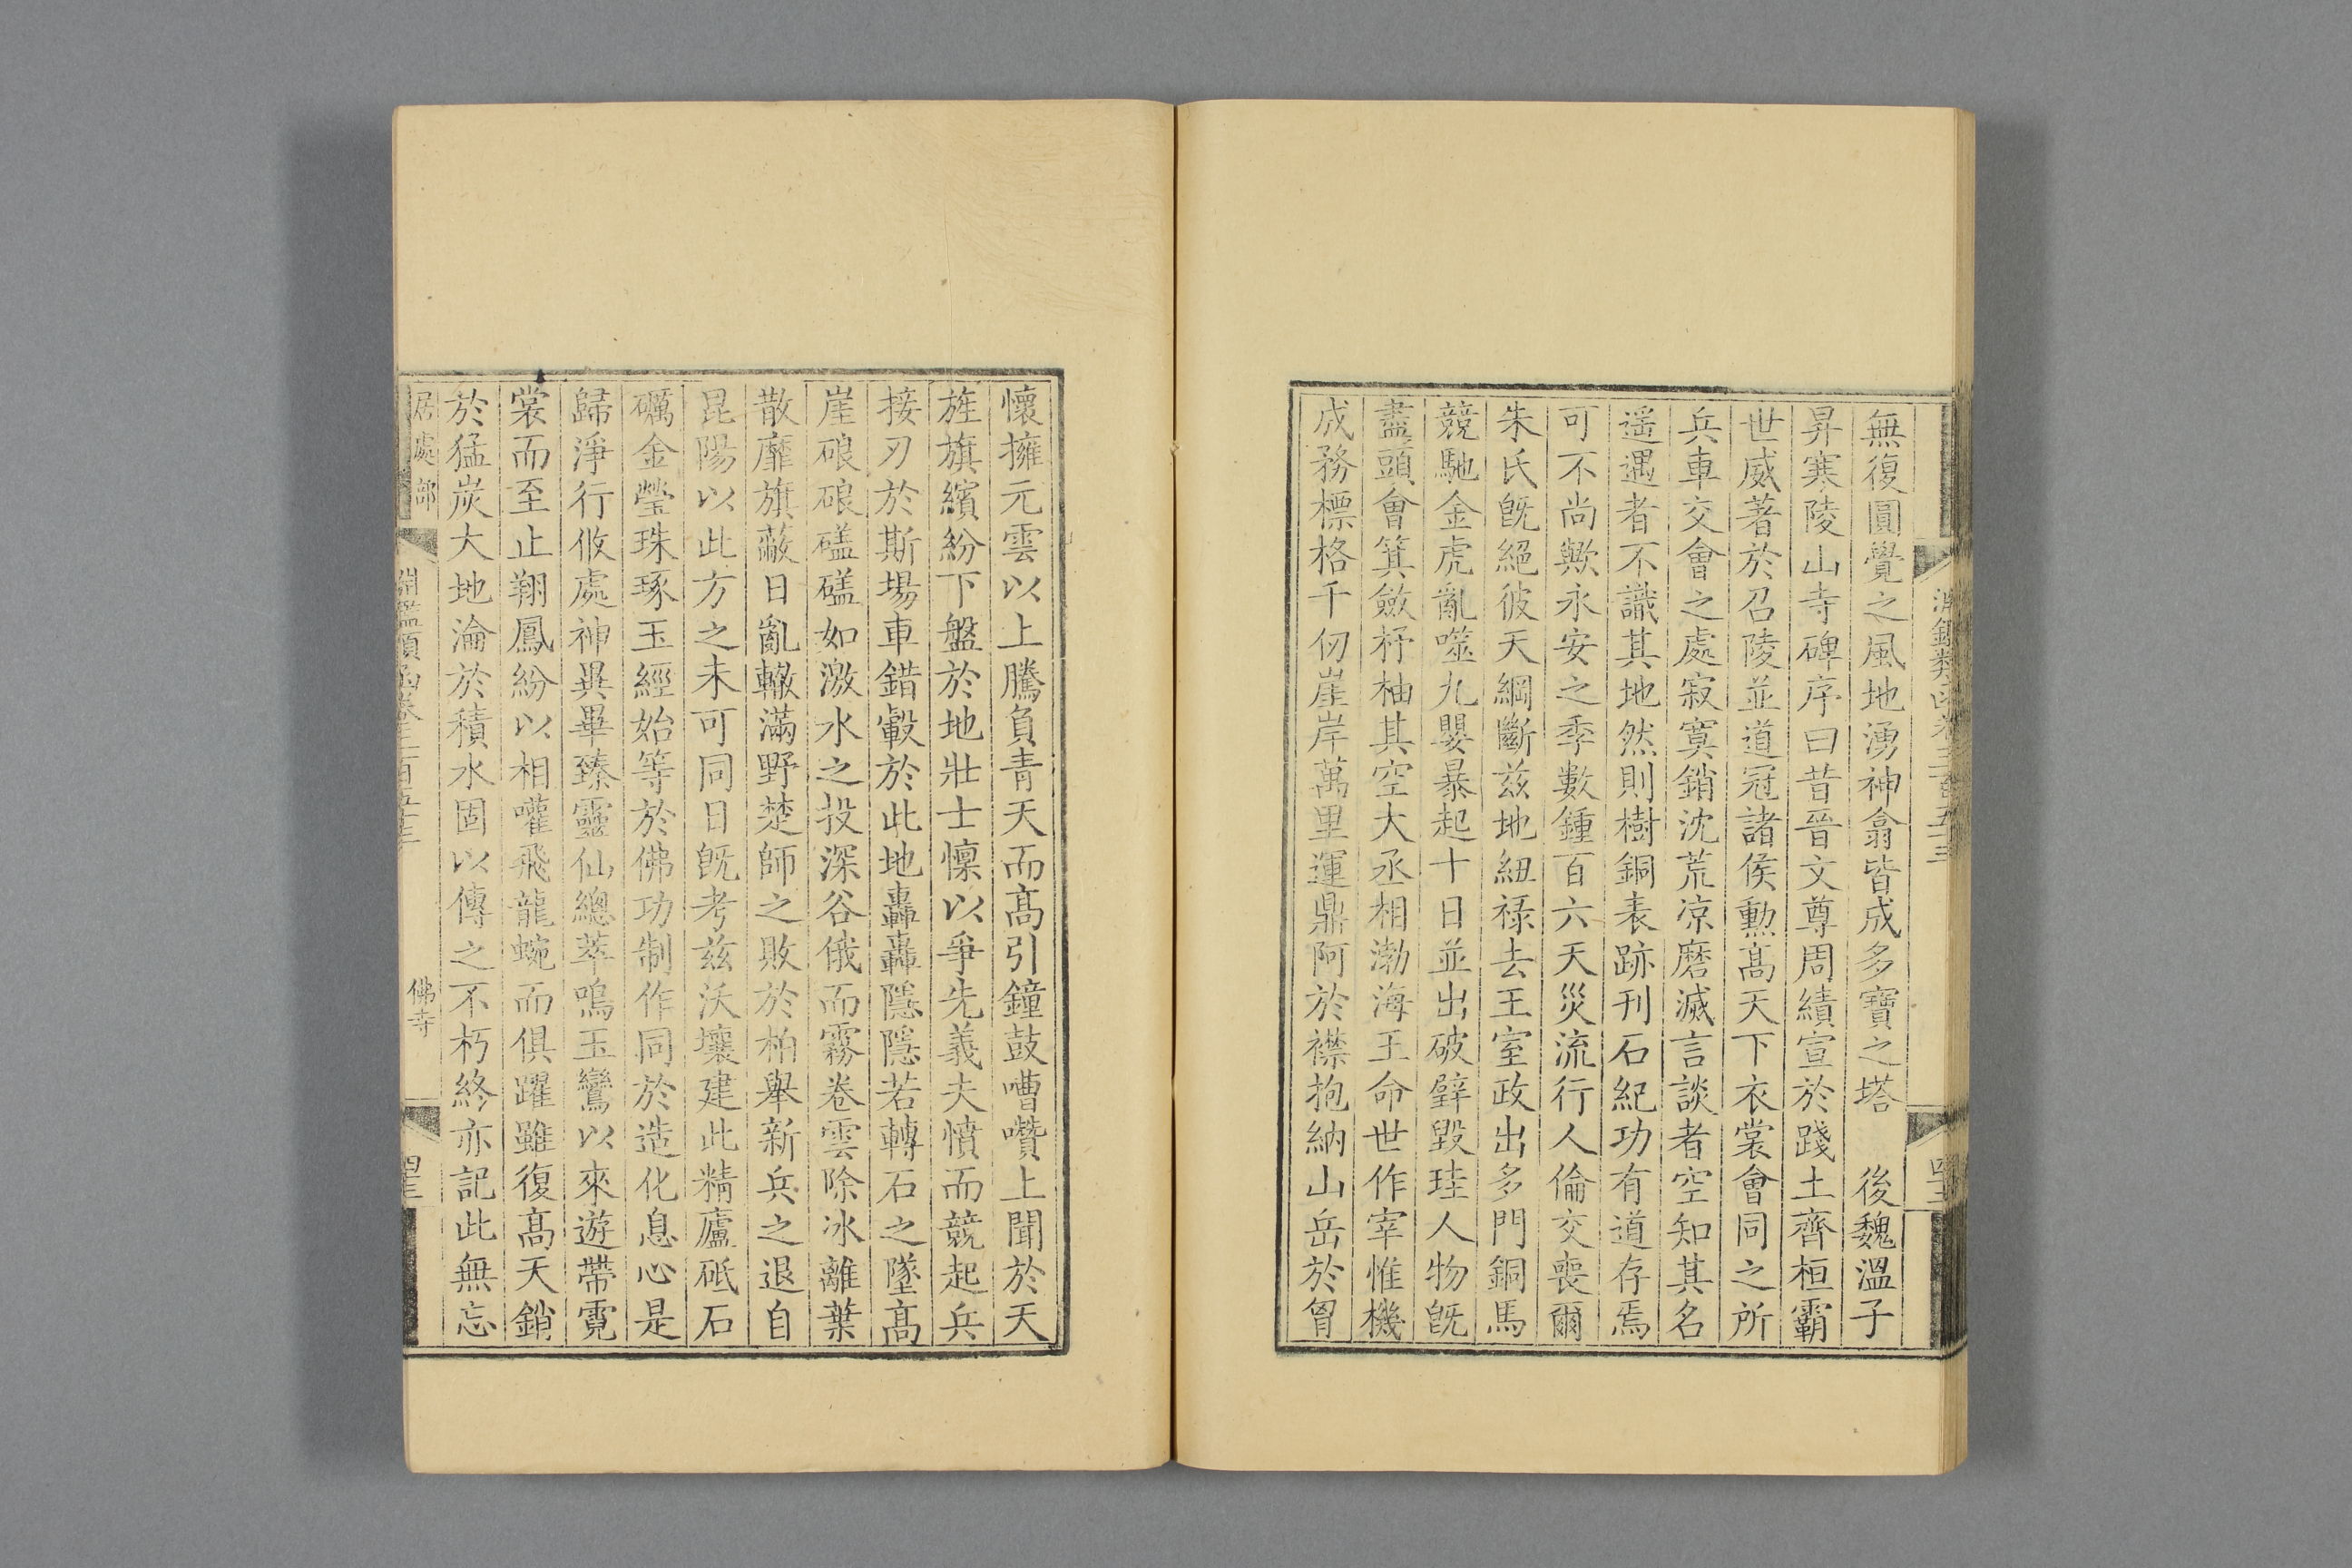 無復圓覺之風地湧神翕皆成多寶之塔　後魏溫子
昇寒陵山寺碑序曰昔晉文尊周績宣於踐土齊桓霸
世威著於召陵並道冠諸侯勲髙天下衣裳會同之所
兵車交會之處寂寞銷沈荒凉磨滅言談者空知其名
遥遇者不識其地然則樹銅表跡刋石紀功有道存焉
可不尚歟永安之季數鍾百六天災流行人倫交喪爾
朱氏既絕彼天綱斷兹地紐禄去王室政出多門銅馬
競馳金虎亂噬九嬰暴起十日並出破璧毀珪人物既
盡頭會箕斂杼柚其空大丞相渤海王命世作宰惟機
成務標格千仞崖岸萬里運鼎阿於襟抱納山岳於胷
懷擁元雲以上騰負青天而髙引鐘鼓嘈囋上聞於天
旌旗繽紛下盤於地壯士懍以爭先義夫憤而競起兵
接刃於斯場車錯轂於此地轟轟隱隱若轉石之墜髙
崖硠硠礚礚如激水之投深谷俄而霧卷雲除冰離葉
散靡旗蔽日亂轍滿野楚師之敗於柏舉新兵之退自
昆陽以此方之未可同日既考兹沃壤建此精廬砥石
礪金瑩珠琢玉經始等於佛功制作同於造化息心是
歸淨行攸處神異畢臻靈仙總萃鳴玉鸞以來遊帶霓
裳而至止翔鳳紛以相嚾飛龍蜿而俱躍雖復髙天銷
於猛炭大地淪於積水固以傳之不朽終亦記此無忘
居處部　佛寺